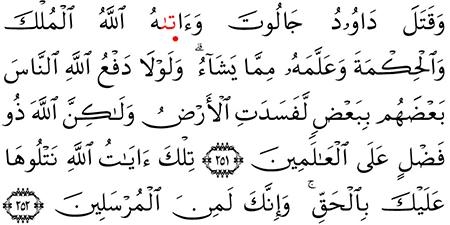 وَقَتَلَ دَاوُۥدُ جَالُوتَ وَءَاتَىٰهُ ٱللَّهُ ٱلْمُلْكَ
وَٱلْحِكْمَةَ وَعَلَّمَهُۥ مِمَّا يَشَآءُ ۗ وَلَوْلَا دَفْعُ ٱللَّهِ ٱلنَّاسَ
بَعْضَهُم بِبَعْضٍ لَّفَسَدَتِ ٱلْأَرْضُ وَلَـٰكِنَّ ٱللَّهَ ذُو
فَضْلٍ عَلَى ٱلْعَـٰلَمِينَ ﴿٢٥١﴾ تِلْكَ ءَايَـٰتُ ٱللَّهِ نَتْلُوهَا
عَلَيْكَ بِٱلْحَقِّ ۚ وَإِنَّكَ لَمِنَ ٱلْمُرْسَلِينَ ﴿٢٥٢﴾